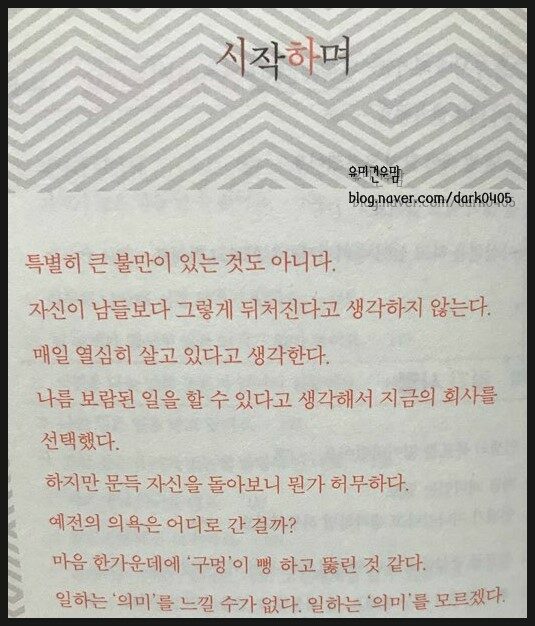 시작하며
유미건우맘
blog.naver.com/dark0405
특별히 큰 불만이 있는 것도 아니다.
자신이 남들보다 그렇게 뒤처진다고 생각하지 않는다.
매일 열심히 살고 있다고 생각한다.
나름 보람된 일을 할 수 있다고 생각해서 지금의 회사를
선택했다.
하지만 문득 자신을 돌아보니 뭔가 허무하다.
예전의 의욕은 어디로 간 걸까?
마음 한가운데에 ‘구멍’이 뻥 하고 뚫린 것 같다.
일하는 ‘의미’를 느낄 수가 없다. 일하는 ‘의미’를 모르겠다.